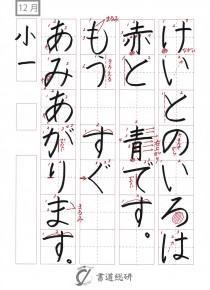 12月
けいとのいろは
赤と青です。
もうすぐ
あみあがります。
小一
書道総研